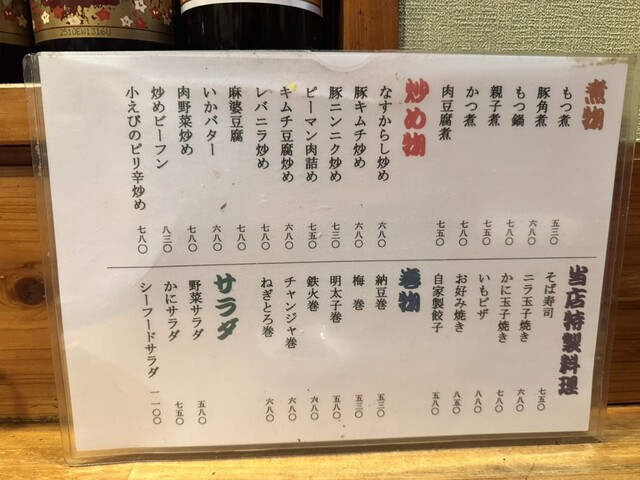 2510EW1316U
煮物
もつ煮 五三〇
豚角煮 六八〇
もつ鍋 七八〇
親子煮 七五〇
かつ煮 七八〇
肉豆腐煮 七五〇
炒め物
なすからし炒め 六八〇
豚キムチ炒め 六八〇
豚ニンニク炒め 七三〇
ピーマン肉詰め 七五〇
キムチ豆腐炒め 六八〇
レバニラ炒め 七八〇
麻婆豆腐 七八〇
いかバター 六八〇
肉野菜炒め 七八〇
炒めビーフン 八三〇
小えびのピリ辛炒め 七八〇
当店特製料理
そば寿司 七五〇
ニラ玉子焼き 六八〇
かに玉子焼き 七八〇
いもピザ 八八〇
お好み焼き 七五〇
自家製餃子 五八〇
巻物
納豆巻 五三〇
梅巻 五三〇
明太子巻 五八〇
鉄火巻 六八〇
チャンジャ巻 六八〇
ねぎとろ巻 六八〇
サラダ
野菜サラダ 五八〇
かにサラダ 七五〇
シーフードサラダ 一一〇〇